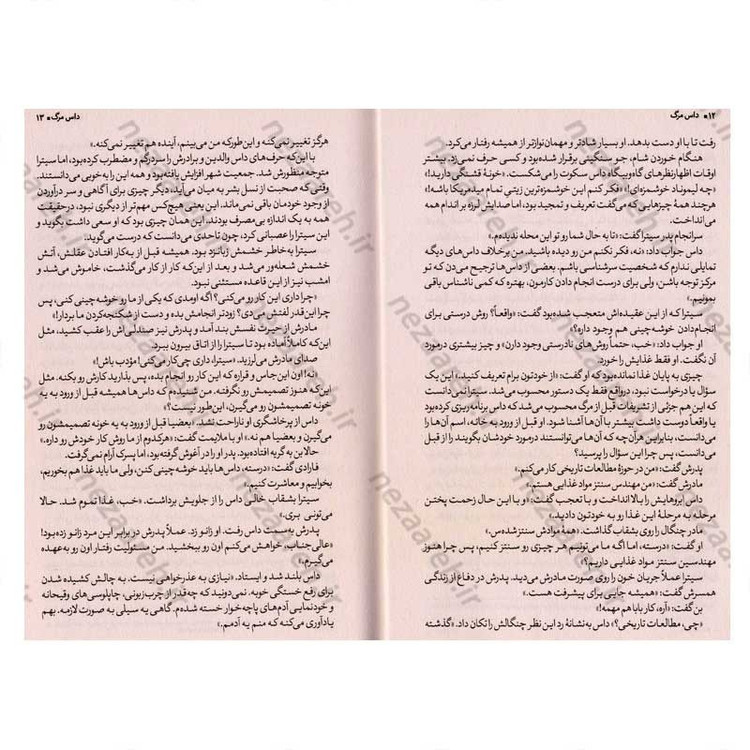 ۱۲ داس مرگ
رفت تا با او دست بدهد. او بسیار شادتر و مهمان‌نوازتر از همیشه رفتار می‌کرد.
هنگام خوردن شام، جو سنگینی برقرار شده بود و کسی حرف نمی‌زد. بیشتر
اوقات اظهارنظرهای گاه‌وبیگاه داس سکوت را می‌شکست. «خونهٔ قشنگی دارید!»
«چه لیموناد خوشمزه‌ای!» «فکر کنم این خوشمزه‌ترین زیتی تمام میدمریکا باشه!»
هرچند همهٔ چیزهایی که می‌گفت تعریف و تمجید بود، اما صدایش لرزه بر اندام همه
می‌انداخت.
سرانجام پدر سیترا گفت: «تا به حال شما رو تو این محله ندیده‌م.»
داس جواب داد: «نه، فکر نکنم من رو دیده باشید. من برخلاف داس‌های دیگه
تمایلی ندارم که شخصیت سرشناسی باشم. بعضی از داس‌ها ترجیح می‌دن که تو
مرکز توجه باشن، ولی برای درست انجام دادن کارمون، بهتره که کمی ناشناس باقی
بمونیم.»
سیترا که از این عقیده‌اش متعجب شده بود گفت: «واقعاً؟ روش درستی برای
انجام‌دادن خوشه‌چینی هم وجود داره؟»
او جواب داد: «خب، حتماً روش‌های نادرستی وجود دارن» و چیز بیشتری درمورد
آن نگفت. او فقط غذایش را خورد.
چیزی به پایان غذا نمانده بود که او گفت: «از خودتون برام تعریف کنید.» این یک
سؤال یا درخواست نبود، درواقع فقط یک دستور محسوب می‌شد. سیترا نمی‌دانست
که این هم جزئی از تشریفات قبل از مرگ محسوب می‌شد که داس برنامه‌ریزی کرده بود
یا واقعاً دوست داشت بیشتر با آن‌ها آشنا شود. او قبل از ورود به خانه، اسم آن‌ها را
می‌دانست، بنابراین هر آن‌چه که آن‌ها می‌توانستند درمورد خودشان بگویند را از قبل
می‌دانست، پس چرا این سؤال را پرسید؟
پدرش گفت: «من در حوزهٔ مطالعات تاریخی کار می‌کنم.»
مادرش گفت: «من مهندس سنتز مواد غذایی هستم.»
داس ابروهایش را بالا انداخت و با تعجب گفت: «و با این حال زحمت پختن
مرحله به مرحلهٔ این غذا رو به خودتون دادید.»
مادر چنگال را روی بشقاب گذاشت. «همهٔ موادش سنتز شده‌س.»
او گفت: «درسته، اما اگه ما می‌تونیم هر چیزی رو سنتز کنیم، پس چرا هنوز
مهندسین سنتز مواد غذایی داریم؟»
سیترا عملاً جریان خون را روی صورت مادرش می‌دید. پدرش در دفاع از زندگی
همسرش گفت: «همیشه جایی برای پیشرفت هست.»
بن گفت: «آره، کار بابا هم مهمه!»
«چی، مطالعات تاریخی؟» داس به‌نشانهٔ رد این نظر چنگالش را تکان داد. «گذشته
داس مرگ ۱۳
هرگز تغییر نمی‌کنه و این‌طور که من می‌بینم، آینده هم تغییر نمی‌کنه.»
با این‌که حرف‌های داس والدین و برادرش را سردرگم و مضطرب کرده بود، اما سیترا
متوجه منظورش شد. جمعیت شهر افزایش یافته بود و همه این را به‌خوبی می‌دانستند.
وقتی که صحبت از نسل بشر به میان می‌آید، دیگر چیزی برای آگاهی و سر درآوردن
از وجود خودمان باقی نمی‌ماند. این یعنی هیچ‌کس مهم‌تر از دیگری نبود. درحقیقت
همه به یک اندازه بی‌مصرف بودند. این همان چیزی بود که او سعی داشت بگوید و
این سیترا را عصبانی کرد، چون تاحدی می‌دانست که درست می‌گوید.
سیترا به‌خاطر خشمش زبانزد بود. همیشه قبل از به‌کار افتادن عقلش، آتش
خشمش شعله‌ور می‌شد و بعد از این‌که کار از کار می‌گذشت، خاموش می‌شد و
امشب نیز از این قاعده مستثنی نبود.
«چرا داری این کار رو می‌کنی؟ اگه اومدی که یکی از ما رو خوشه‌چینی کنی، پس
چرا این‌قدر لفتش می‌دی؟ زودتر انجامش بده و دست از شکنجه‌کردن ما بردار!»
مادرش از حیرت نفسش بند آمد و پدرش نیز صندلی‌اش را عقب کشید، مثل
این‌که کاملاً آماده بود تا سیترا را از اتاق بیرون ببرد.
صدای مادرش می‌لرزید. «سیترا، داری چی‌کار می‌کنی! مؤدب باش!»
«نه! اون این‌جاس و قراره که این کار رو انجام بده، پس بذارید کارش رو بکنه. مثل
این که هنوز تصمیمش رو نگرفته. من شنیده‌م که داس‌ها همیشه قبل از ورود به یه
خونه تصمیمشون رو می‌گیرن، این‌طور نیست؟»
داس از پرخاشگری او ناراحت نشد. «بعضیا قبل از ورود به یه خونه تصمیمشون رو
می‌گیرن و بعضیا هم نه.» و با ملایمت گفت: «هرکدوم از ما روش کار خودش رو داره.»
حالا بن به گریه افتاده بود. پدر او را در آغوش گرفته بود، اما پسرک آرام نمی‌گرفت.
فارادی گفت: «درسته، داس‌ها باید خوشه‌چینی کنن، ولی ما باید غذا هم بخوریم،
بخوابیم و معاشرت کنیم.»
سیترا بشقاب خالی داس را از جلویش برداشت. «خب، غذا تموم شد. حالا
می‌تونی بری.»
پدرش به‌سمت داس رفت. او زانو زد. عملاً پدرش در برابر این مرد زانو زده بود!
«عالی‌جناب، خواهش می‌کنم اون رو ببخشید. من مسئولیت رفتار اون رو به‌عهده
می‌گیرم.»
داس بلند شد و ایستاد. «نیازی به عذرخواهی نیست. به چالش کشیده شدن
برای رفع خستگی خوبه. نمی‌دونید که چه‌قدر از چرب‌زبونی، چاپلوسی‌های وقیحانه
و خودنمایی آدم‌های پاچه‌خوار خسته شده‌م. گاهی یه سیلی به صورت لازمه. بهم
یادآوری می‌کنه که منم یه آدمم.»
nezaareh.ir